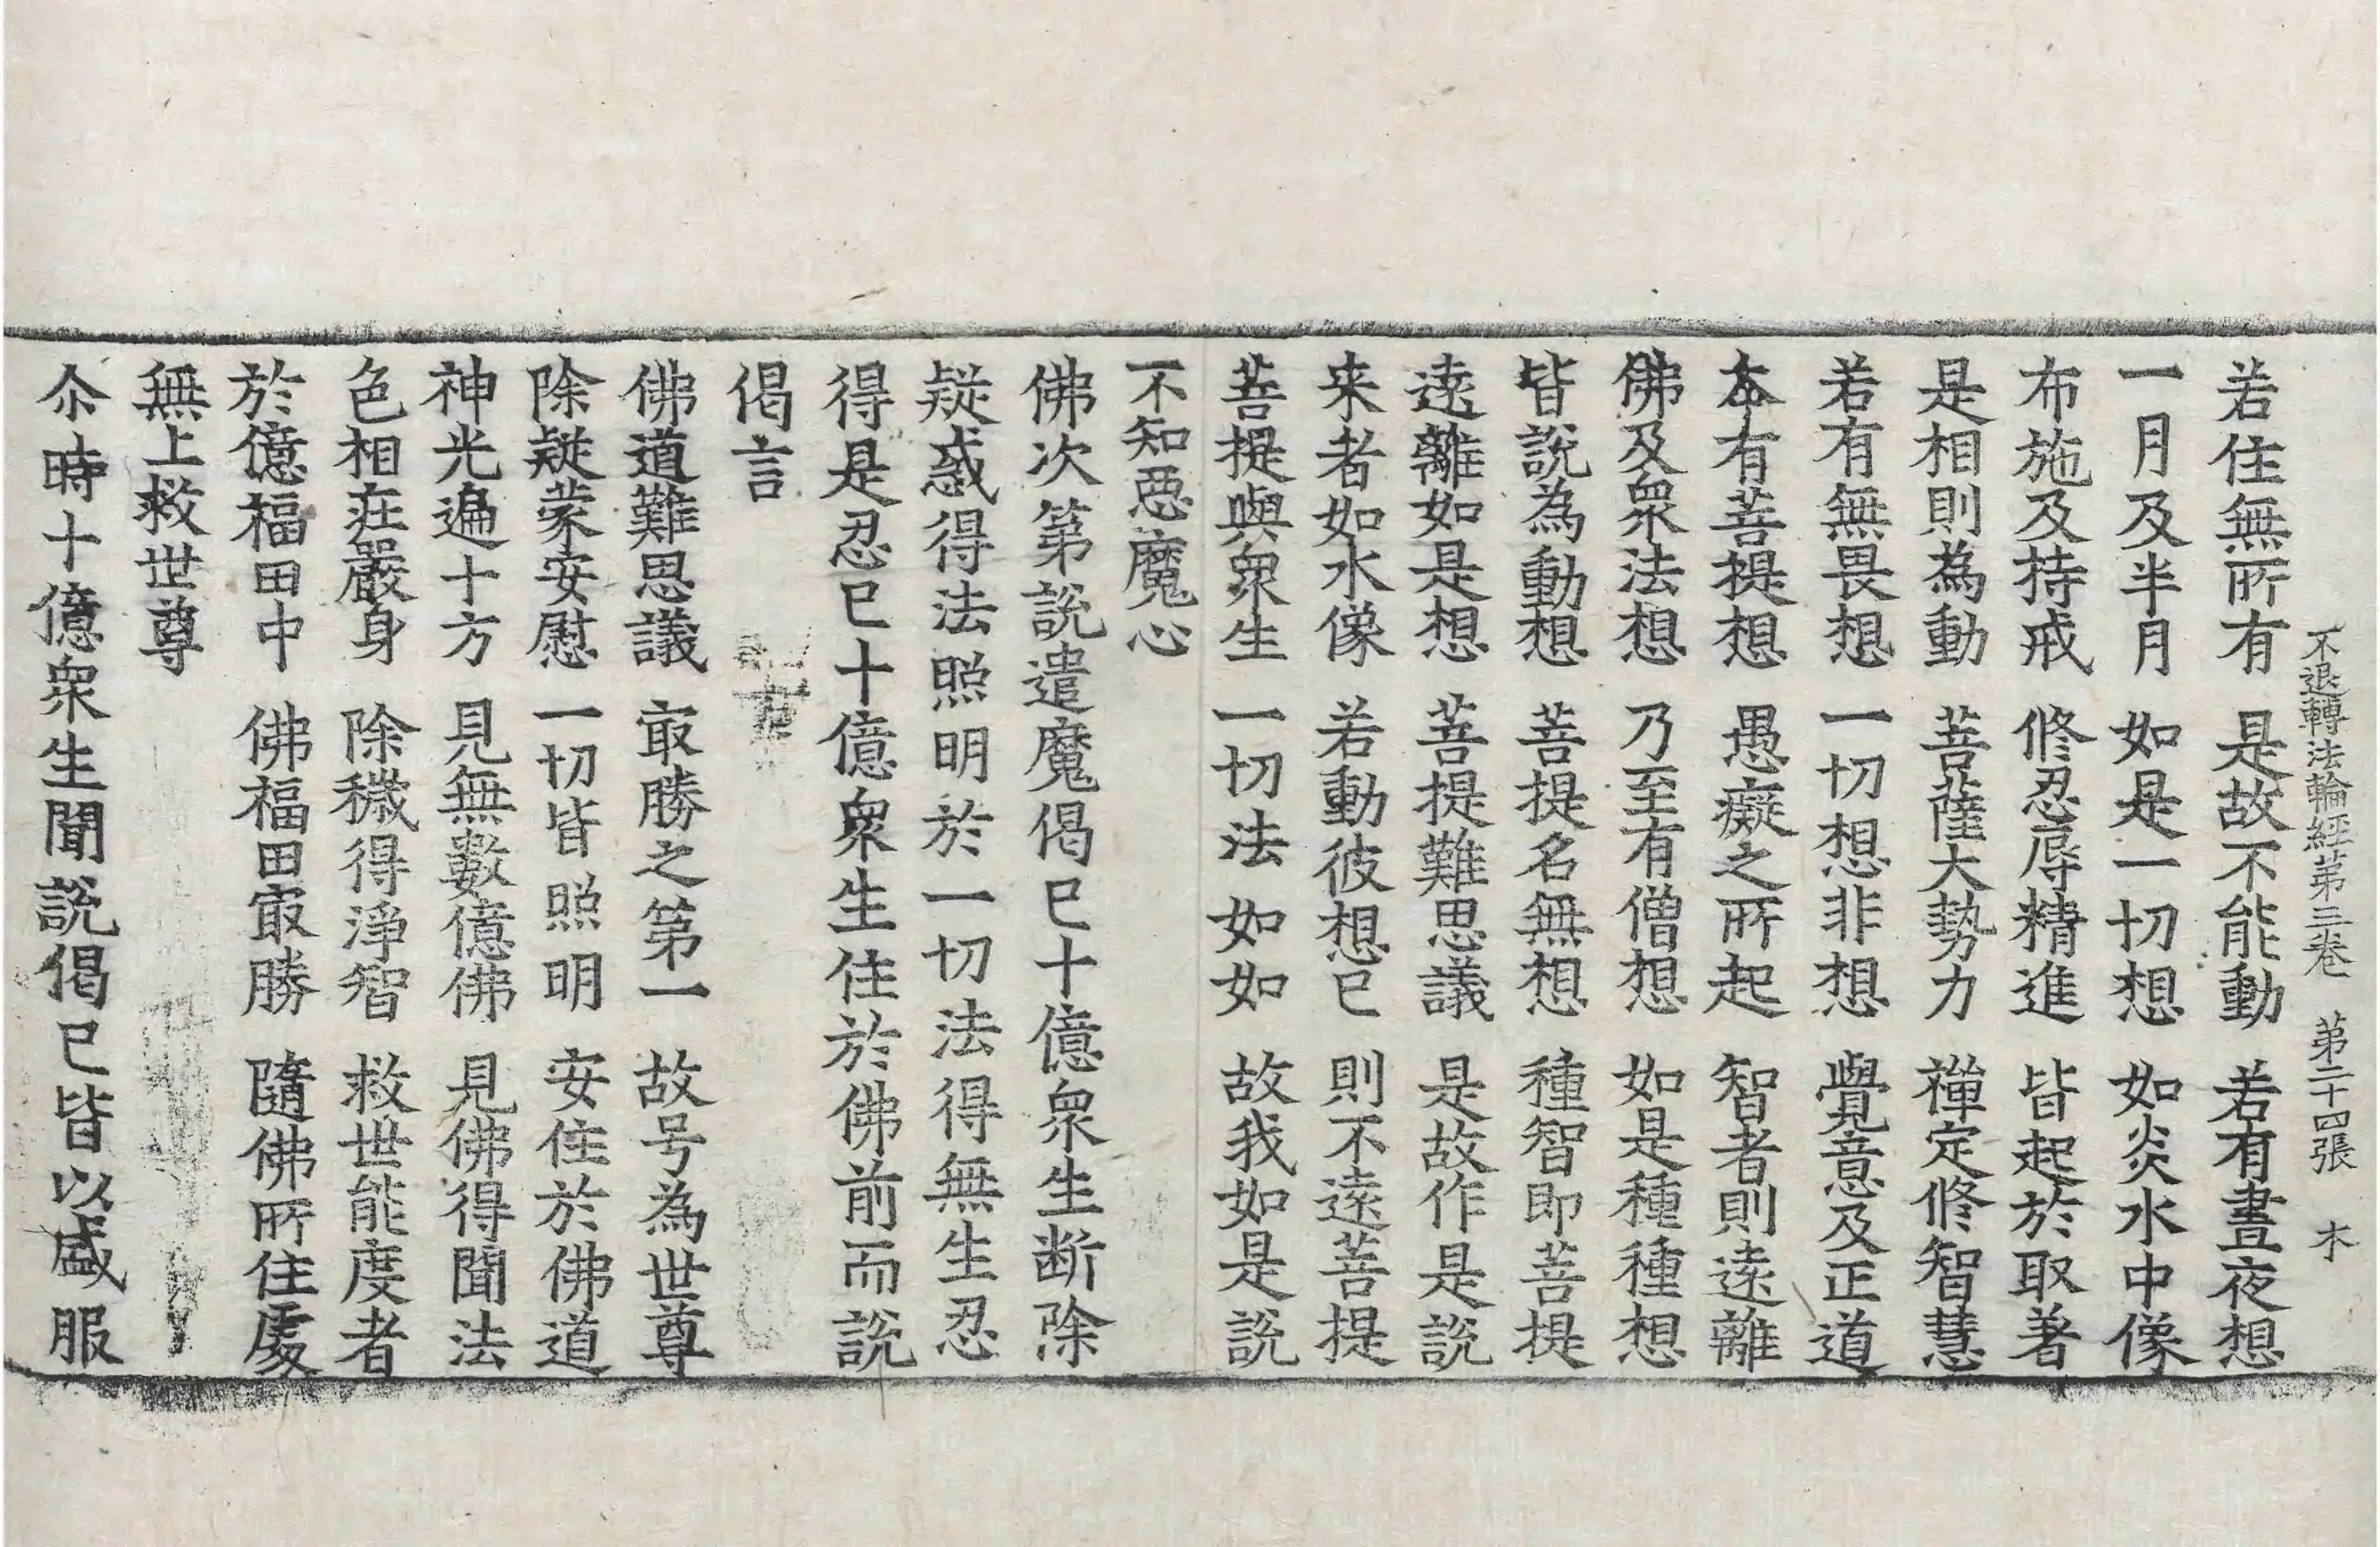 不退轉法輪經第三卷　第二十四張　木
若住無所有　是故不能動　若有晝夜想
一月及半月　如是一切想　如炎水中像
布施及持戒　修忍辱精進　皆起於取著
是相則為動　菩薩大勢力　禪定修智慧
若有無畏想　一切想非想　覺意及正道
本有菩提想　愚癡之所起　智者則遠離
佛及衆法想　乃至有僧想　如是種種想
皆說為動想　菩提名無想　種智即菩提
遠離如是想　菩提難思議　是故作是說
来者如水像　若動彼想已　則不遠菩提
菩提與衆生　一切法如如　故我如是說
不知惡魔心
佛次第說遣魔偈已十億衆生断除
疑惑得法照明於一切法得無生忍
得是忍已十億衆生住於佛前而說
偈言
佛道難思議　㝡勝之第一　故号為世尊
除疑蒙安慰　一切皆照明　安住於佛道
神光遍十方　見無數億佛　見佛得聞法
色相莊嚴身　除穢得淨智　救世能度者
於億福田中　佛福田㝡勝　隨佛所住處
無上救世尊
尒時十億衆生聞說偈已皆以盛服